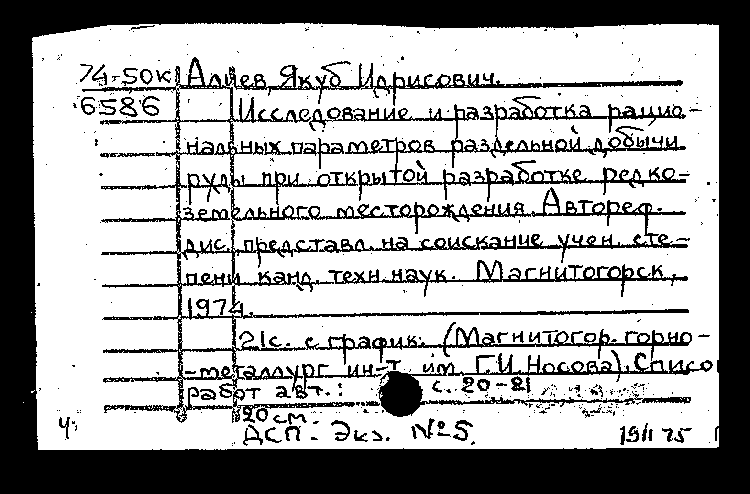 74-50к Алиев, Якуб Идрисович.
6586 Исследование и разработка рацио-
нальных параметров раздельной добычи
руды при открытой разработке редко-
земельного месторождения. Автореф.
дис. представл. на соискание учен. сте-
пени канд. техн. наук. Магнитогорск,
1974.
21с. с график. (Магнитогор. горно-
-металлург ин-т им. Г.И. Носова). Список
работ авт.: с. 20-21
20 см.
ДСП. Экз. №25.